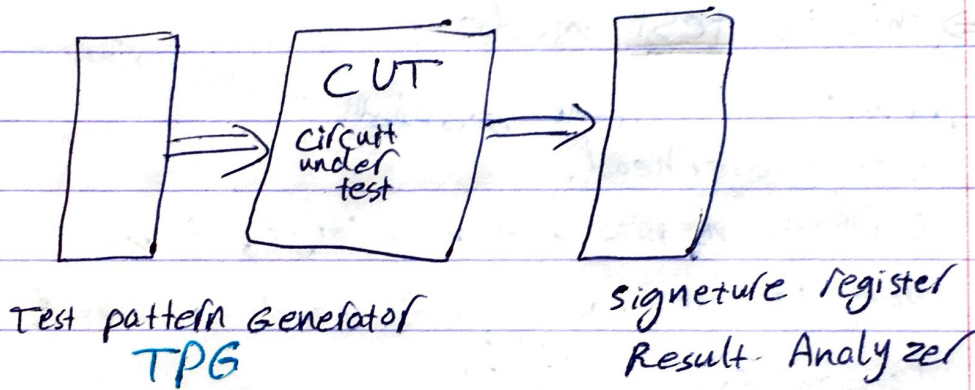 CUT
circuit
under
test
Test pattern Generator
TPG
signeture register
Result Analyzer